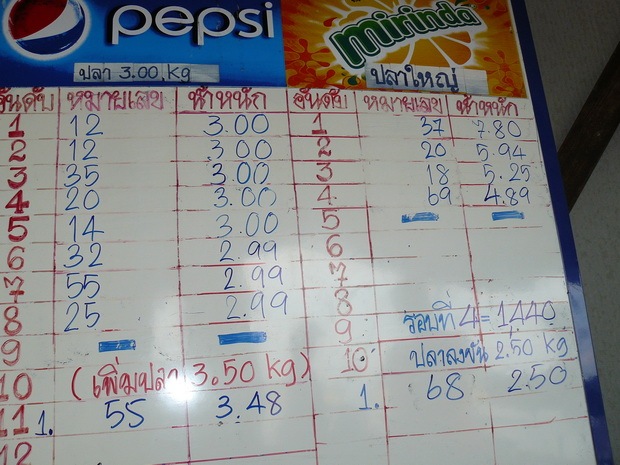 pepsi
mirinda
ปลา 3.00 kg
ปลาใหญ่
อันดับ หมายเลข น้ำหนัก อันดับ หมายเลข น้ำหนัก
1 12 3.00 1 37 7.80
2 12 3.00 2 20 5.94
3 35 3.00 3 18 5.25
4 20 3.00 4 69 4.89
5 14 3.00 5
6 32 2.99 6
7 55 2.99 7
8 25 2.99 8
9 9 รอบที่ 4 = 1,440
10 (เพิ่มปลา 3.50 kg) 10 ปลาลงพัน 2.50 kg
11 1. 55 3.48 1. 68 2.50
12